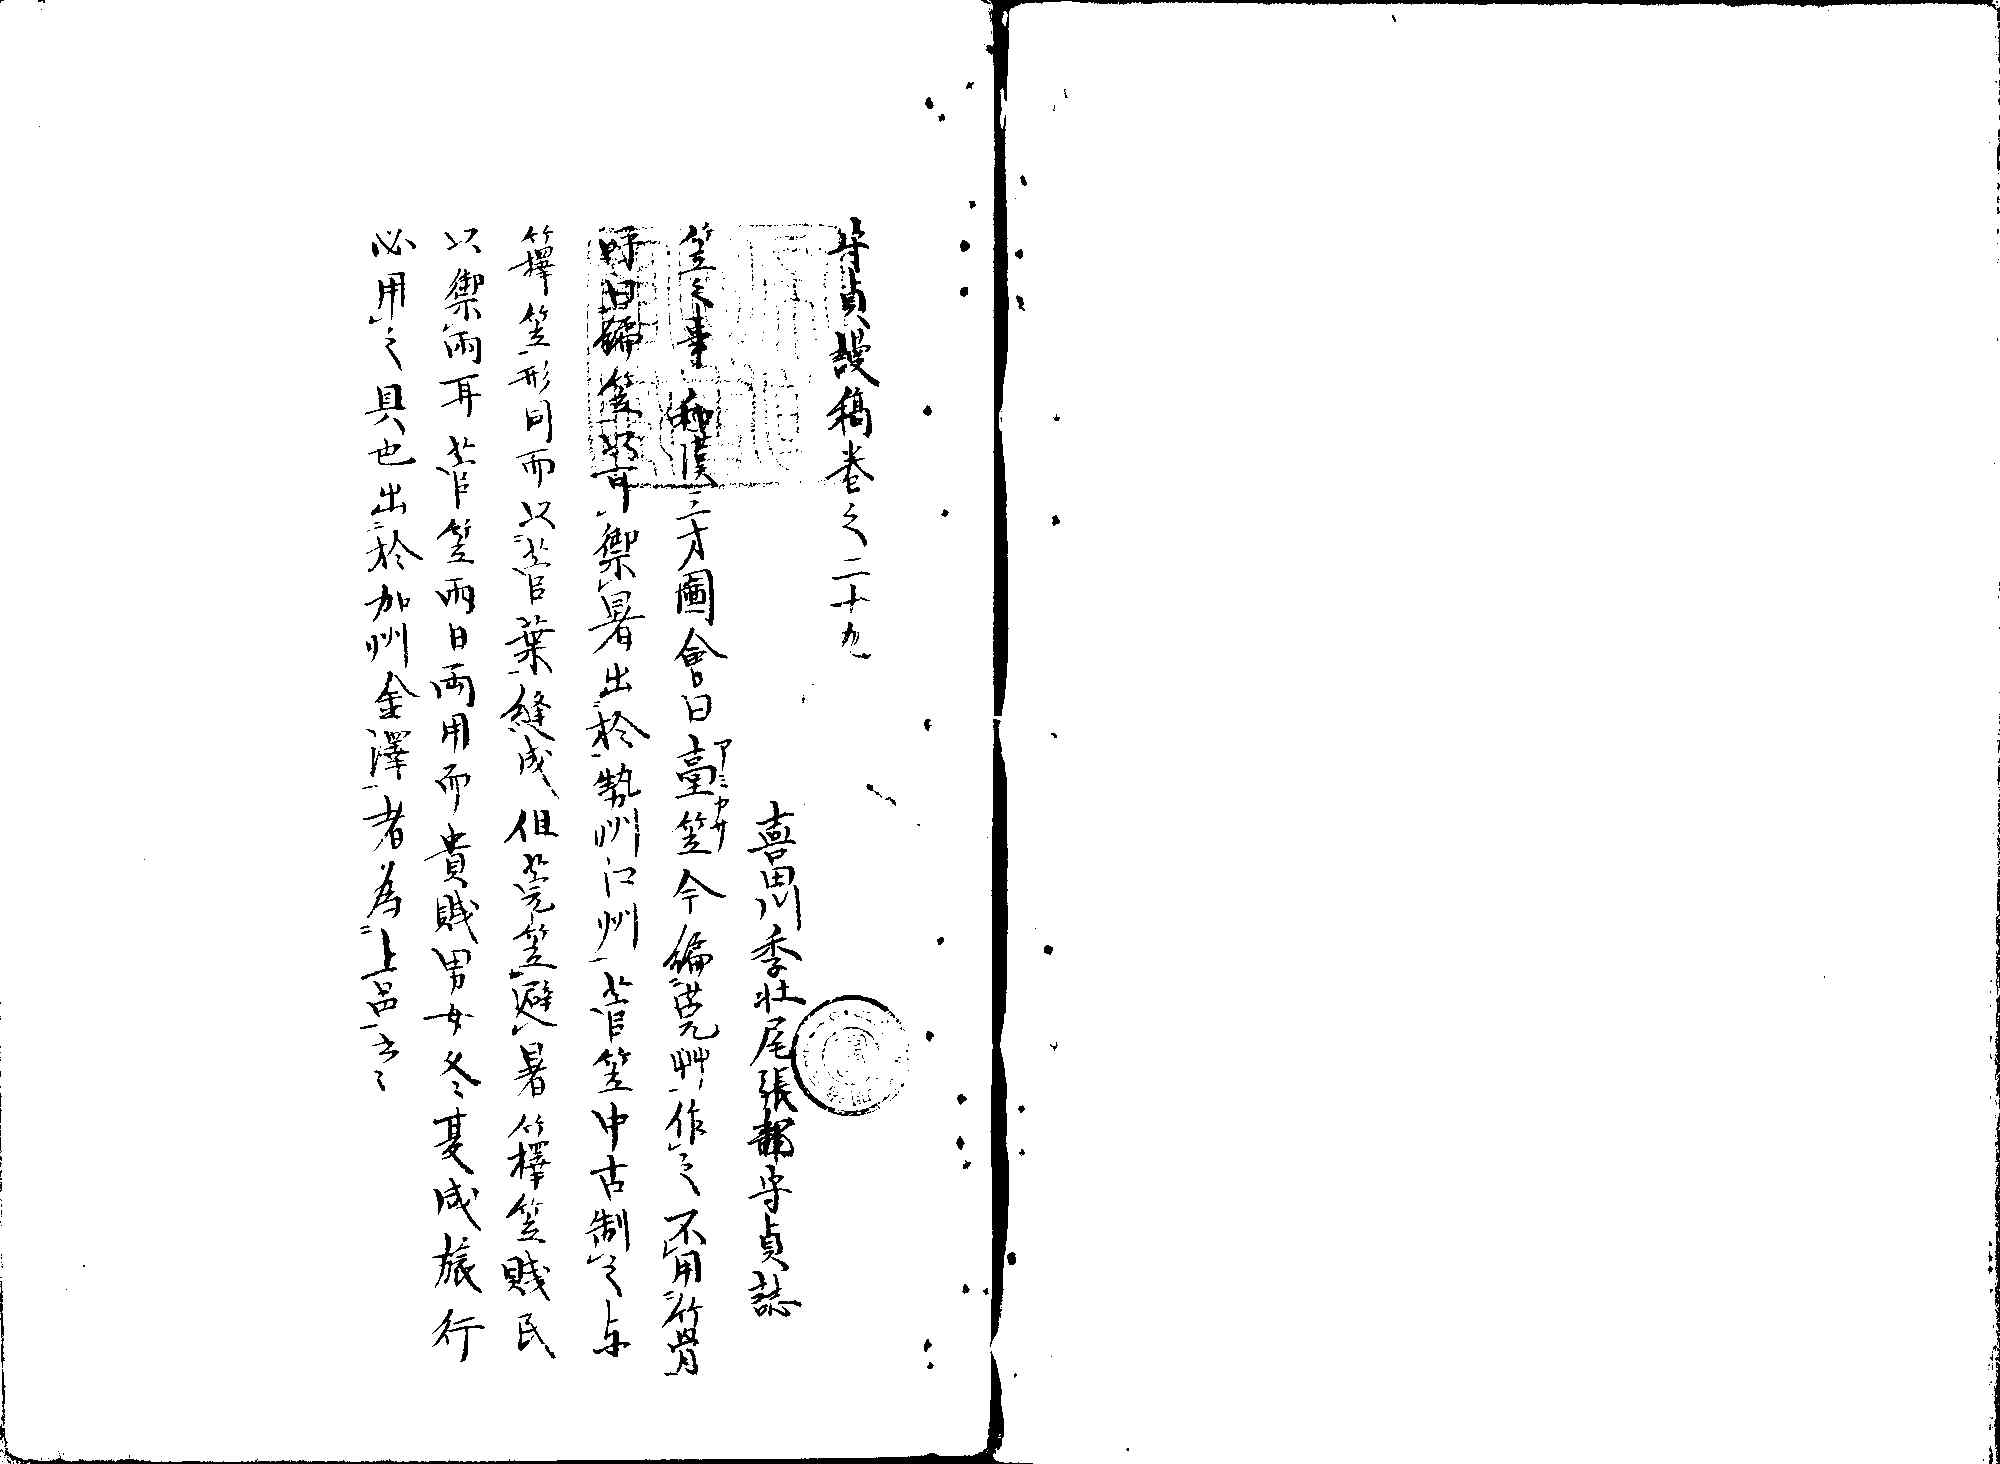 守貞謾稿卷之二十九
喜田川季壮尾張部守貞誌
笠之事 和漢三才圖會曰臺笠今編莞艸作之不用竹骨
アミカサ
呼曰編笠皆可禦暑出於勢州江州菅笠中古制之与
籜笠形同而以菅葉縫成但莞笠避暑籜笠賤民
以禦雨耳菅笠雨日両用而貴賤男女冬夏成旅行
必用之具也出於加州金澤者為上品云々